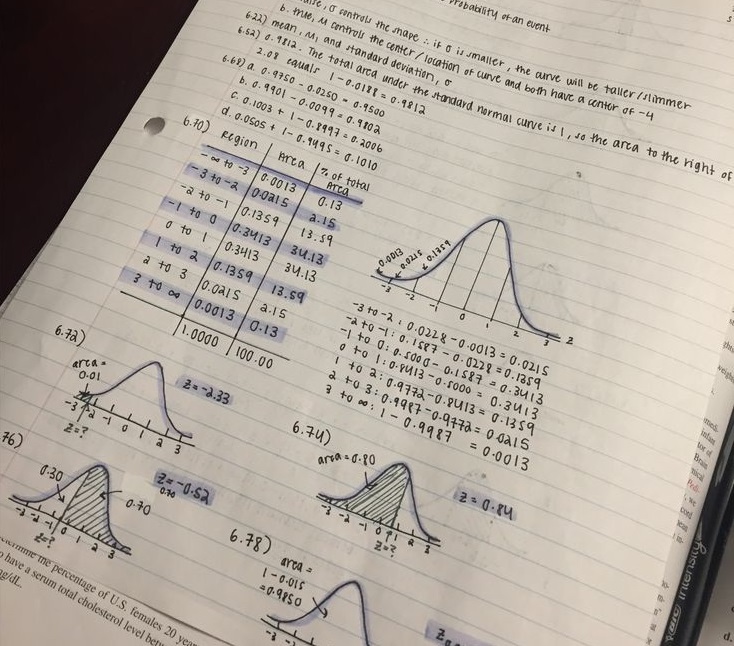 probability of an event
σ controls the shape ∴ if σ is smaller, the curve will be taller/slimmer
b. true, M controls the center/location of curve and both have a center of -4
6.22) mean, M, and standard deviation, σ
6.52) 0.9812. The total area under the standard normal curve is 1, so the area to the right of
2.08 equals 1-0.0188 = 0.9812
6.68) a. 0.9750 - 0.0250 = 0.9500
b. 0.9901 - 0.0099 = 0.9802
c. 0.1003 + 1-0.8997 = 0.2006
d. 0.0505 + 1-0.9495 = 0.1010
6.70)
Region Area % of total Area
-∞ to -3 0.0013 0.13
-3 to -2 0.0215 2.15
-2 to -1 0.1359 13.59
-1 to 0 0.3413 34.13
0 to 1 0.3413 34.13
1 to 2 0.1359 13.59
2 to 3 0.0215 2.15
3 to ∞ 0.0013 0.13
1.0000 100.00
0.0013 0.0215 0.1359
-3 -2 -1 0 1 2 3 z
-3 to -2: 0.0228 - 0.0013 = 0.0215
-2 to -1: 0.1587 - 0.0228 = 0.1359
-1 to 0: 0.5000 - 0.1587 = 0.3413
0 to 1: 0.8413 - 0.5000 = 0.3413
1 to 2: 0.9772 - 0.8413 = 0.1359
2 to 3: 0.9987 - 0.9772 = 0.0215
3 to ∞: 1 - 0.9987 = 0.0013
6.72)
area =
0.01
z = -2.33
-3 -2 -1 0 1 2 3
z=?
6.74)
area = 0.80
z = 0.84
-3 -2 -1 0 1 2 3
z=?
76)
0.30
0.70
z = -0.52
0.70
-3 -2 -1 0 1 2 3
z=?
6.78)
area =
1-0.015
= 0.9850
-3 -2 -1
the percentage of U.S. females 20
have a serum total cholesterol level
g/dL.
intensity